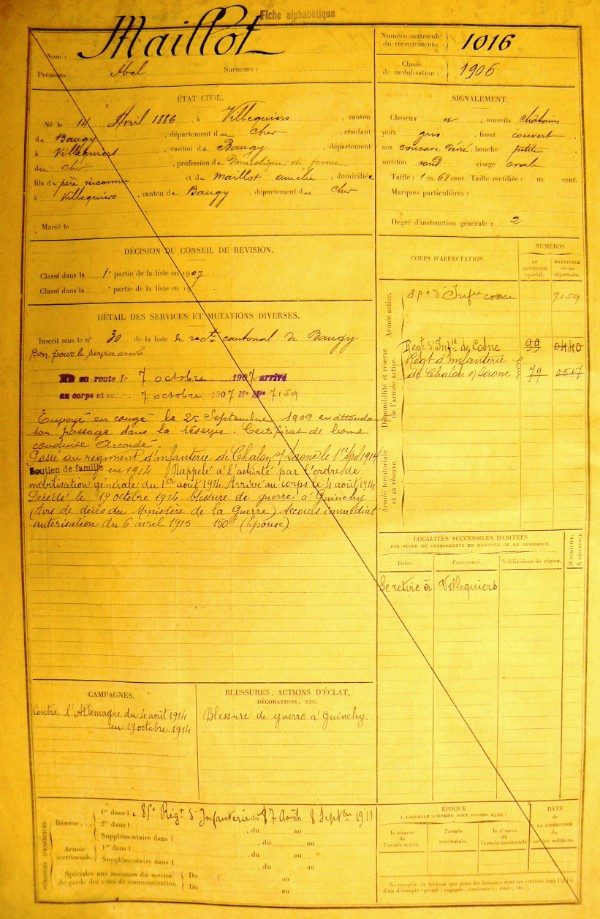 Fiche alphabétique
Nom : Maillot
Prénoms : Abel Surnoms :
Numéro matricule du recrutement : 1016
Classe de mobilisation : 1906
ÉTAT CIVIL.
Né le 14 Avril 1886, à Villequiers, canton
de Baugy, département du Cher, résidant
à Villequiers, canton de Baugy, département
du Cher, profession de Domestique de ferme
fils de père inconnu et de Maillot Amélie, domiciliée
à Villequiers, canton de Baugy, département du Cher
Marié le
SIGNALEMENT.
Cheveux et sourcils châtains
yeux gris, front couvert
nez bouche petite
menton rond visage ovale
Taille : 1 m. 68 cent. Taille rectifiée : m. cent.
Marques particulières :
Degré d'instruction générale : 2
DÉCISION DU CONSEIL DE REVISION.
Classé dans la 1e partie de la liste en 1907
Classé dans la e partie de la liste en 19
DÉTAIL DES SERVICES ET MUTATIONS DIVERSES.
Inscrit sous le n° 30 de la liste de rect. cantonal de Baugy
Bon pour le service armé
en route le 7 octobre 1907 arrivé
au corps 7 octobre 1907 7159
Envoyé en congé le 25 Septembre 1909 en attendant
son passage dans la réserve. Certificat de bonne
conduite Accordé
Passé au régiment d'infanterie de Chalon s/Saône le 1er Avril 1914
Soutien de famille en 1914 Rappelé à l'activité par l'ordre de
mobilisation générale du 1er août 1914. Arrivé au corps le 4 août 1914
Décédé le 19 octobre 1914 blessure de guerre à Quinchy
(Avis de décès du Ministère de la Guerre) secours immédiat
autorisation du 6 avril 1915 150f (épouse)
CORPS D'AFFECTATION.
NUMÉROS
Armée active.
85e d'Infrie 7159
Disponibilité et réserve de l'armée active.
Régt d'Infie de Cosne 99
Régt d'Infanterie
de Chalon s/ Saône 79
Armée territoriale et sa réserve
LOCALITÉS SUCCESSIVES HABITÉES
PAR SUITE DE CHANGEMENTS DE DOMICILE OU DE RÉSIDENCE.
Dates. Communes. Subdivisions de région.
Se retire à Villequiers
CAMPAGNES.
Contre l'Allemagne du 4 août 1914
au 19 octobre 1914
BLESSURES, ACTIONS D'ÉCLAT,
DÉCORATIONS, ETC.
Blessure de guerre à Quinchy.
Réserve
1er dans le 85e Régt d'Infanterie du 17 Août 8 Septbre 1911
2e dans l , du au
Supplémentaire dans l , du au
Armée territoriale.
1er dans l , du au
Supplémentaire dans l , du au
Spéciales aux hommes du service de garde des voies de communication. Du au
Du au
ÉPOQUE
À LAQUELLE L'HOMME DOIT PASSER DANS :
la réserve de l'armée active.
l'armée territoriale.
la réserve de l'armée territoriale
DATE
DE LA LIBÉRATION DU SERVICE MILITAIRE.